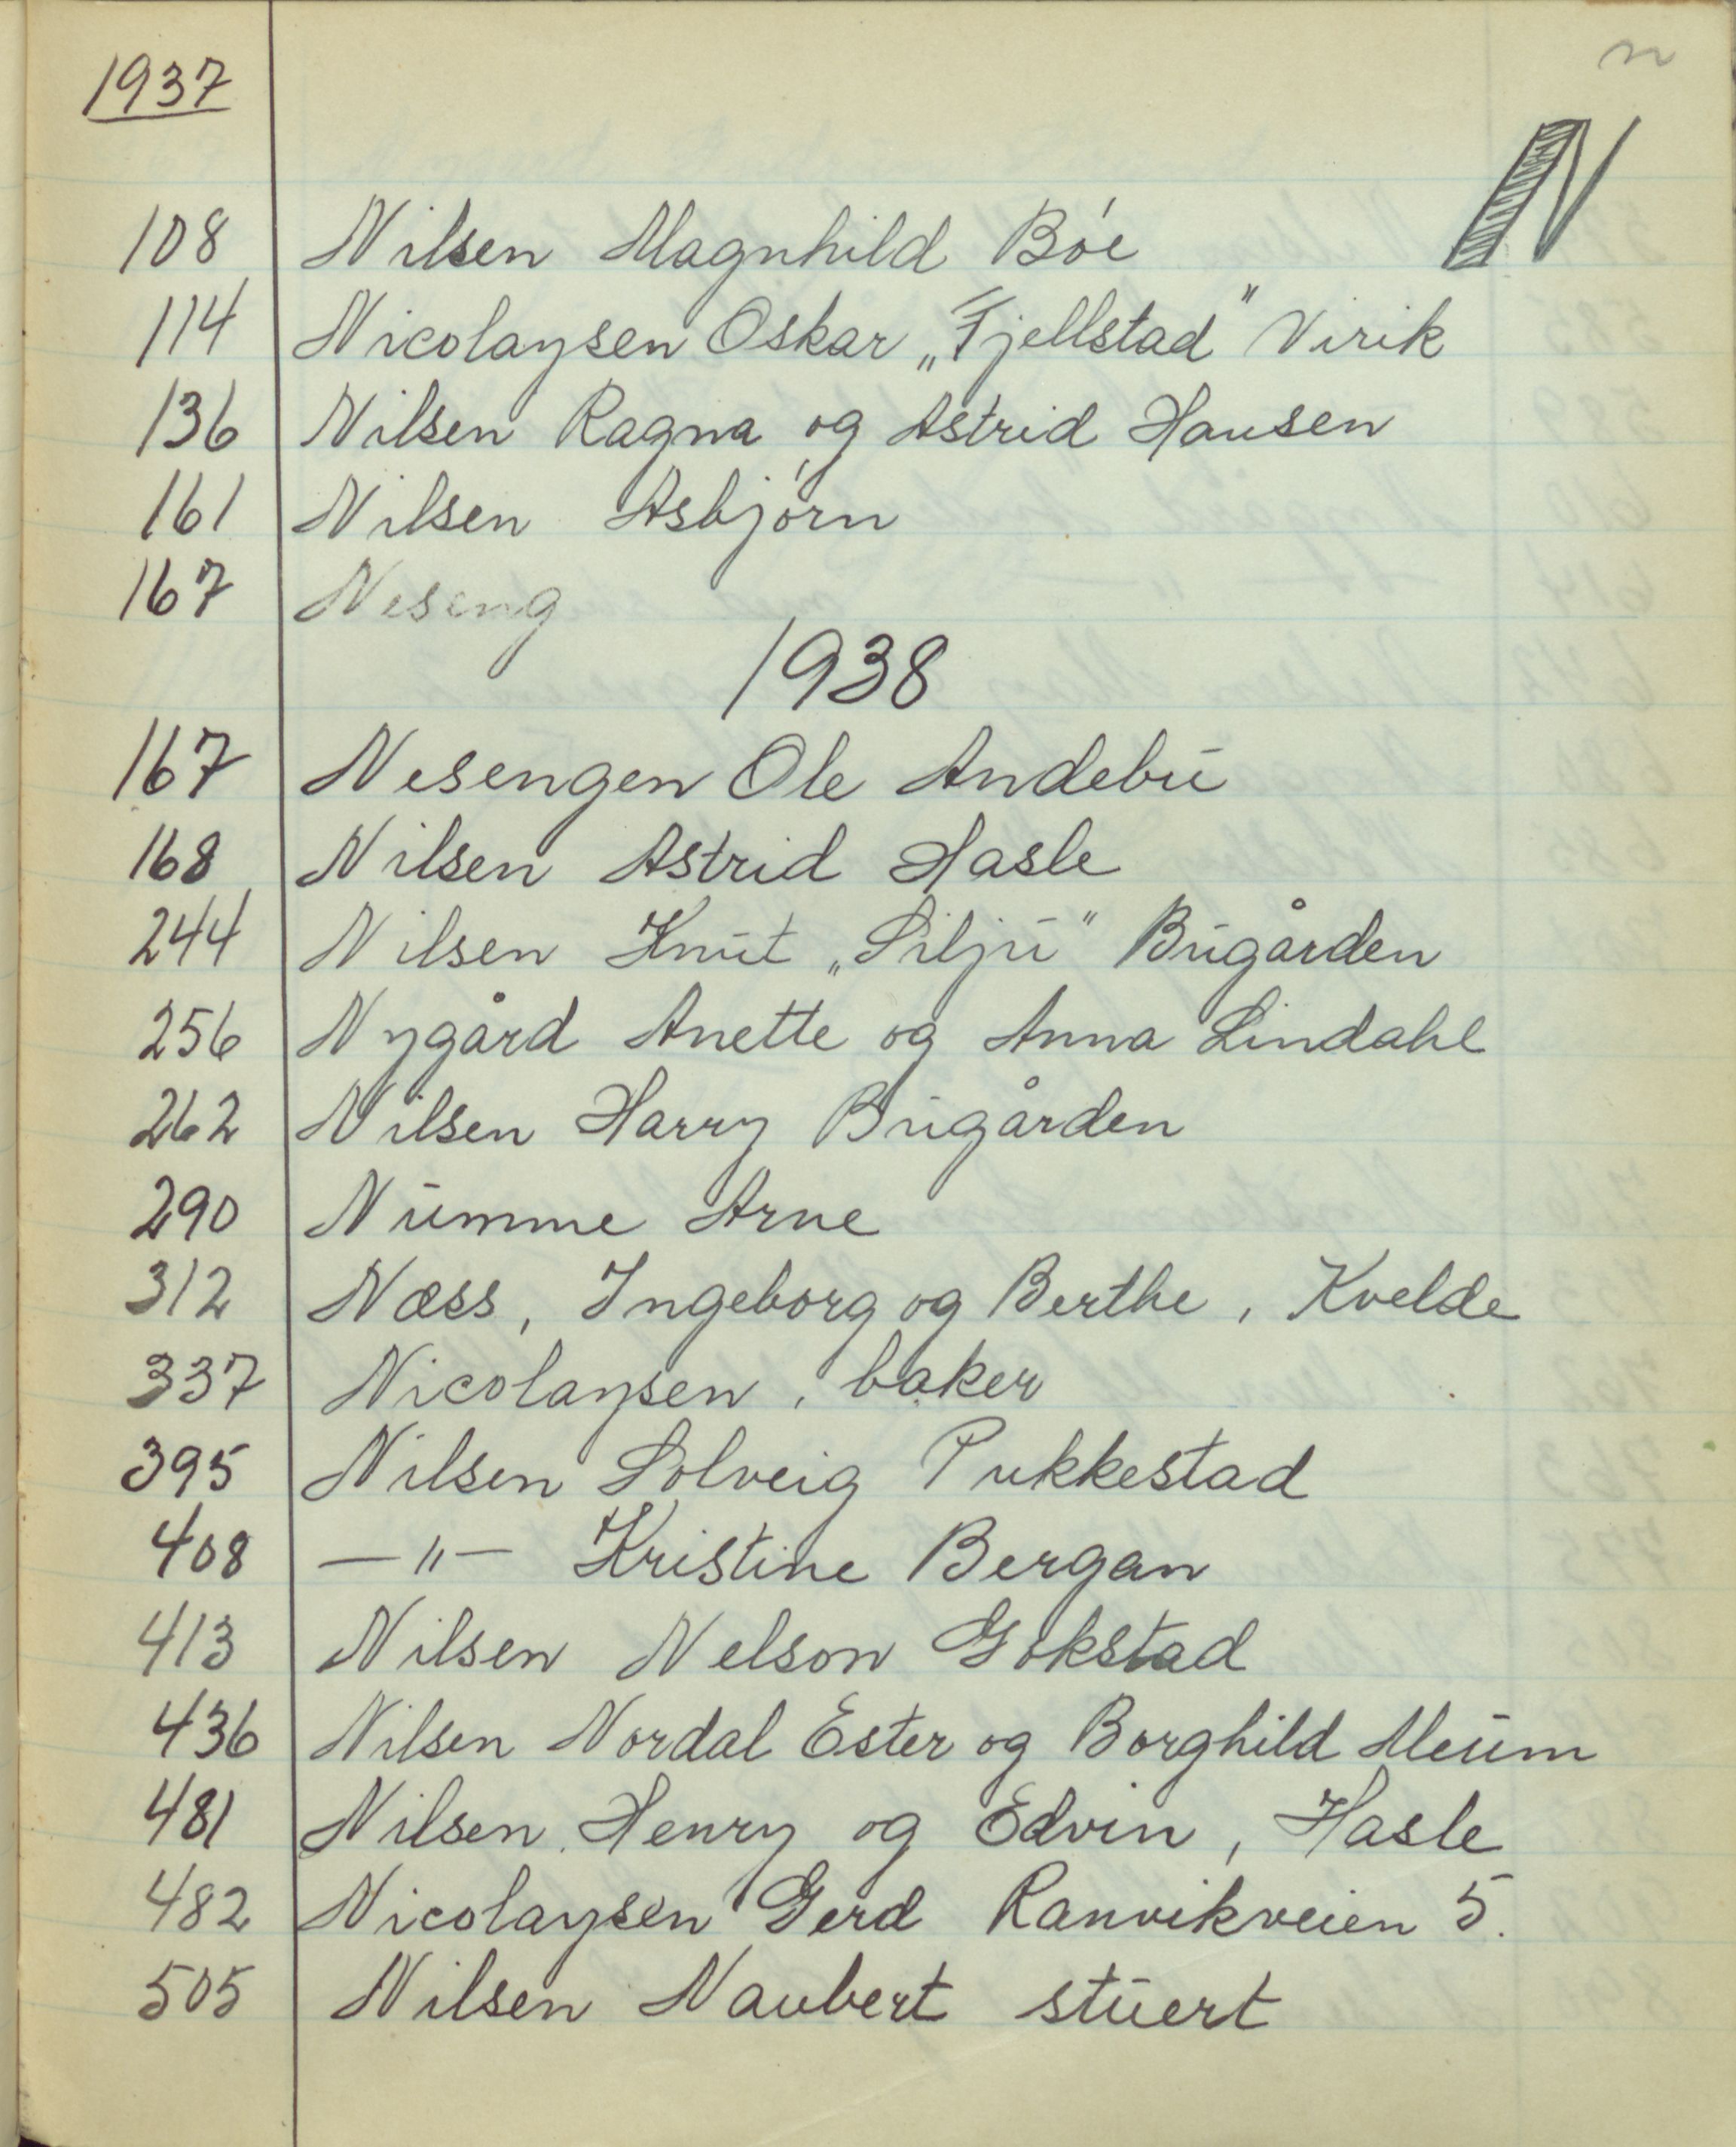 1937
n
N
108 Nilsen Magnhild Bóe
114 Nicolaysen Oskar „Fjellstad" Virik
136 Nilsen Ragna og Astrid Hansen
161 Nilsen Asbjórn
167 Neseng
1938
167 Nesengen Ole Andebu
168 Nilsen Astrid Hasle
244 Nilsen Knut „Silju" Bugården
256 Nygård Anette og Anna Lindahl
262 Nilsen Harry Bugården
290 Numme Arne
312 Næss, Ingeborg og Berthe, Kvelde
337 Nicolaysen, baker
395 Nilsen Solveig Pukkestad
408 —"— Kristine Bergan
413 Nilsen Nelson Gokstad
436 Nilsen Nordal Ester og Borghild Meum
481 Nilsen, Henry og Edvin, Hasle
482 Nicolaysen Gerd Ranvikveien 5.
505 Nilsen Naubert stuert